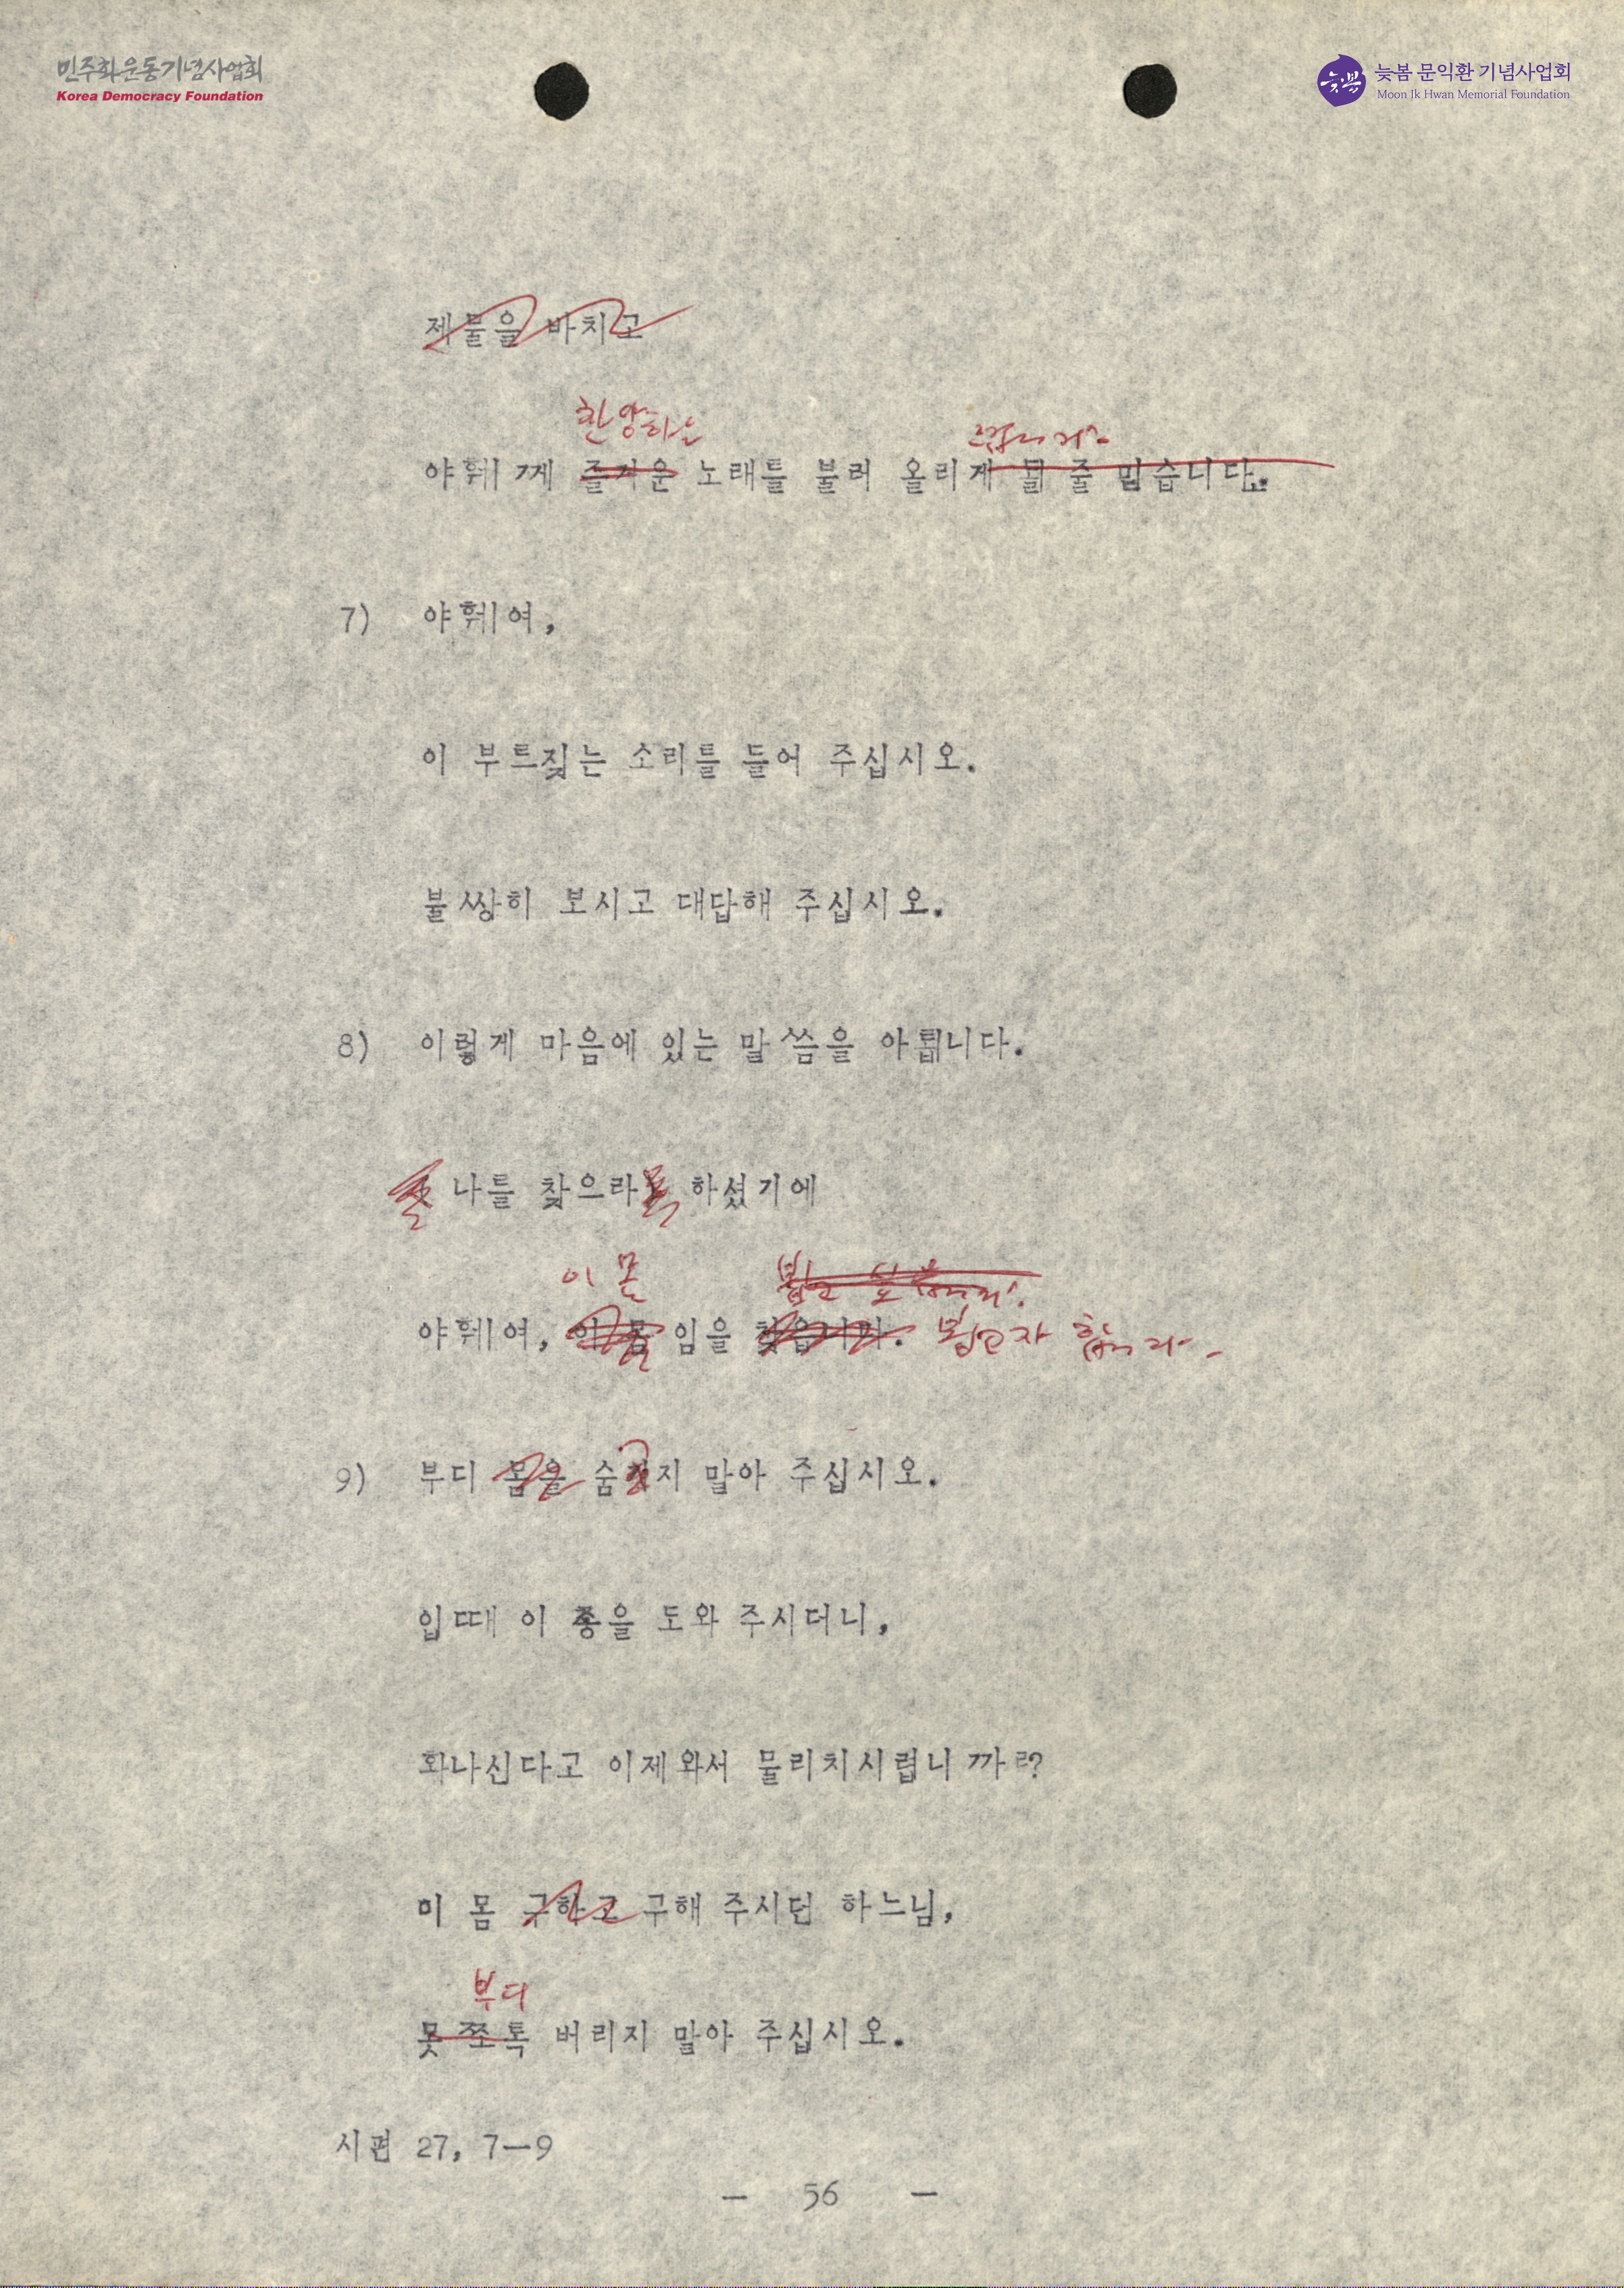 민주화운동기념사업회
Korea Democracy Foundation
늦봄
늦봄 문익환 기념사업회
Moon Ik Hwan Memorial Foundation
제물을 바치고
찬양하는
야훼께 즐거운 노래를 불러 올리게 될 줄 믿습니다.
7) 야훼여,
이 부르짖는 소리를 들어 주십시오.
불쌍히 보시고 대답해 주십시오.
8) 이렇게 마음에 있는 말씀을 아룁니다.
나를 찾으라 하셨기에
이 몸
야훼여, 이 몸 임을 찾습니다. 뵙고자 합니다.
9) 부디 몸을 숨기지 말아 주십시오.
입때 이 종을 도와 주시더니,
화나신다고 이제와서 물리치시렵니까?
이 몸 구하고 구해 주시던 하느님,
부디
못쪼록 버리지 말아 주십시오.
시편 27, 7—9
— 56 —